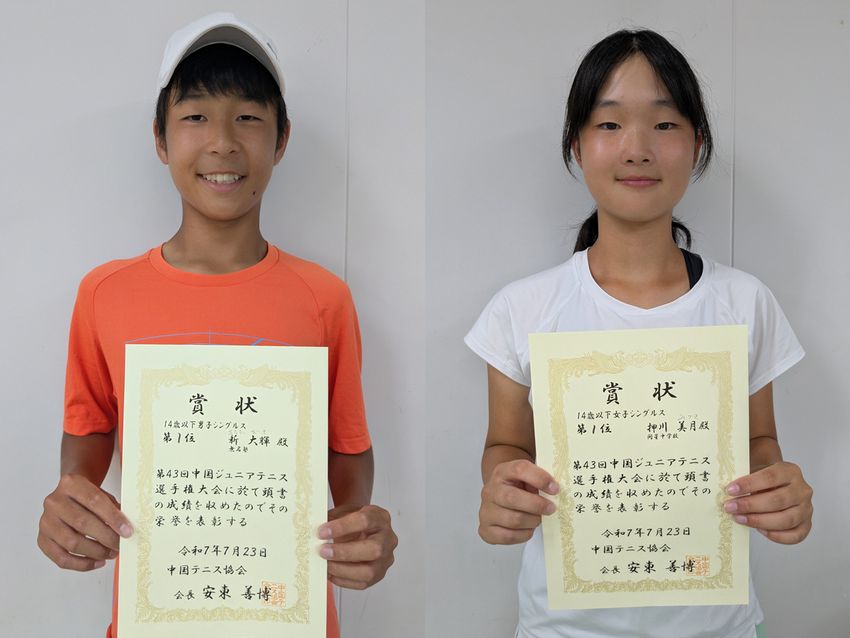 賞状
14歳以下男子シングルス
第1位 新 大輝 殿
第43回中国ジュニアテニス
選手権大会に於て頭書
の成績を収めたのでその
栄誉を表彰する
令和7年7月23日
中国テニス協会
会長 安東 善博
賞状
14歳以下女子シングルス
みつき
第1位 押川 美月殿
第43回中国ジュニアテニス
選手権大会に於て頭書
の成績を収めたのでその
栄誉を表彰する
令和7年7月23日
中国テニス協会
会長 安東 善博